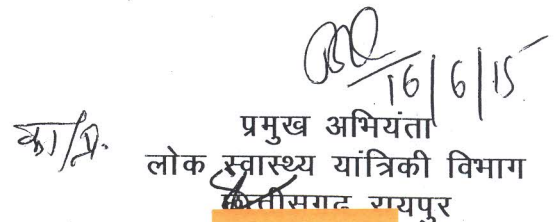 16/6/15
प्रमुख अभियंता
का/प्र.
लोक स्वास्थ्य यांत्रिकी विभाग
छत्तीसगढ़ रायपुर